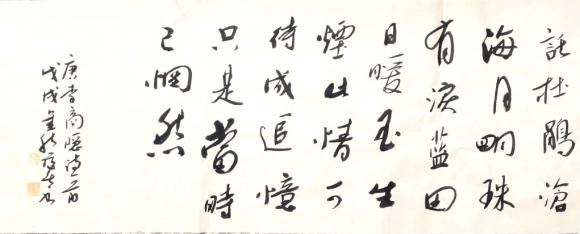 託杜鵑滄
海月明珠
有淚藍田
日暖玉生
煙此情可
待成追憶
只是當時
已惘然
唐李商隱詩
戊戌